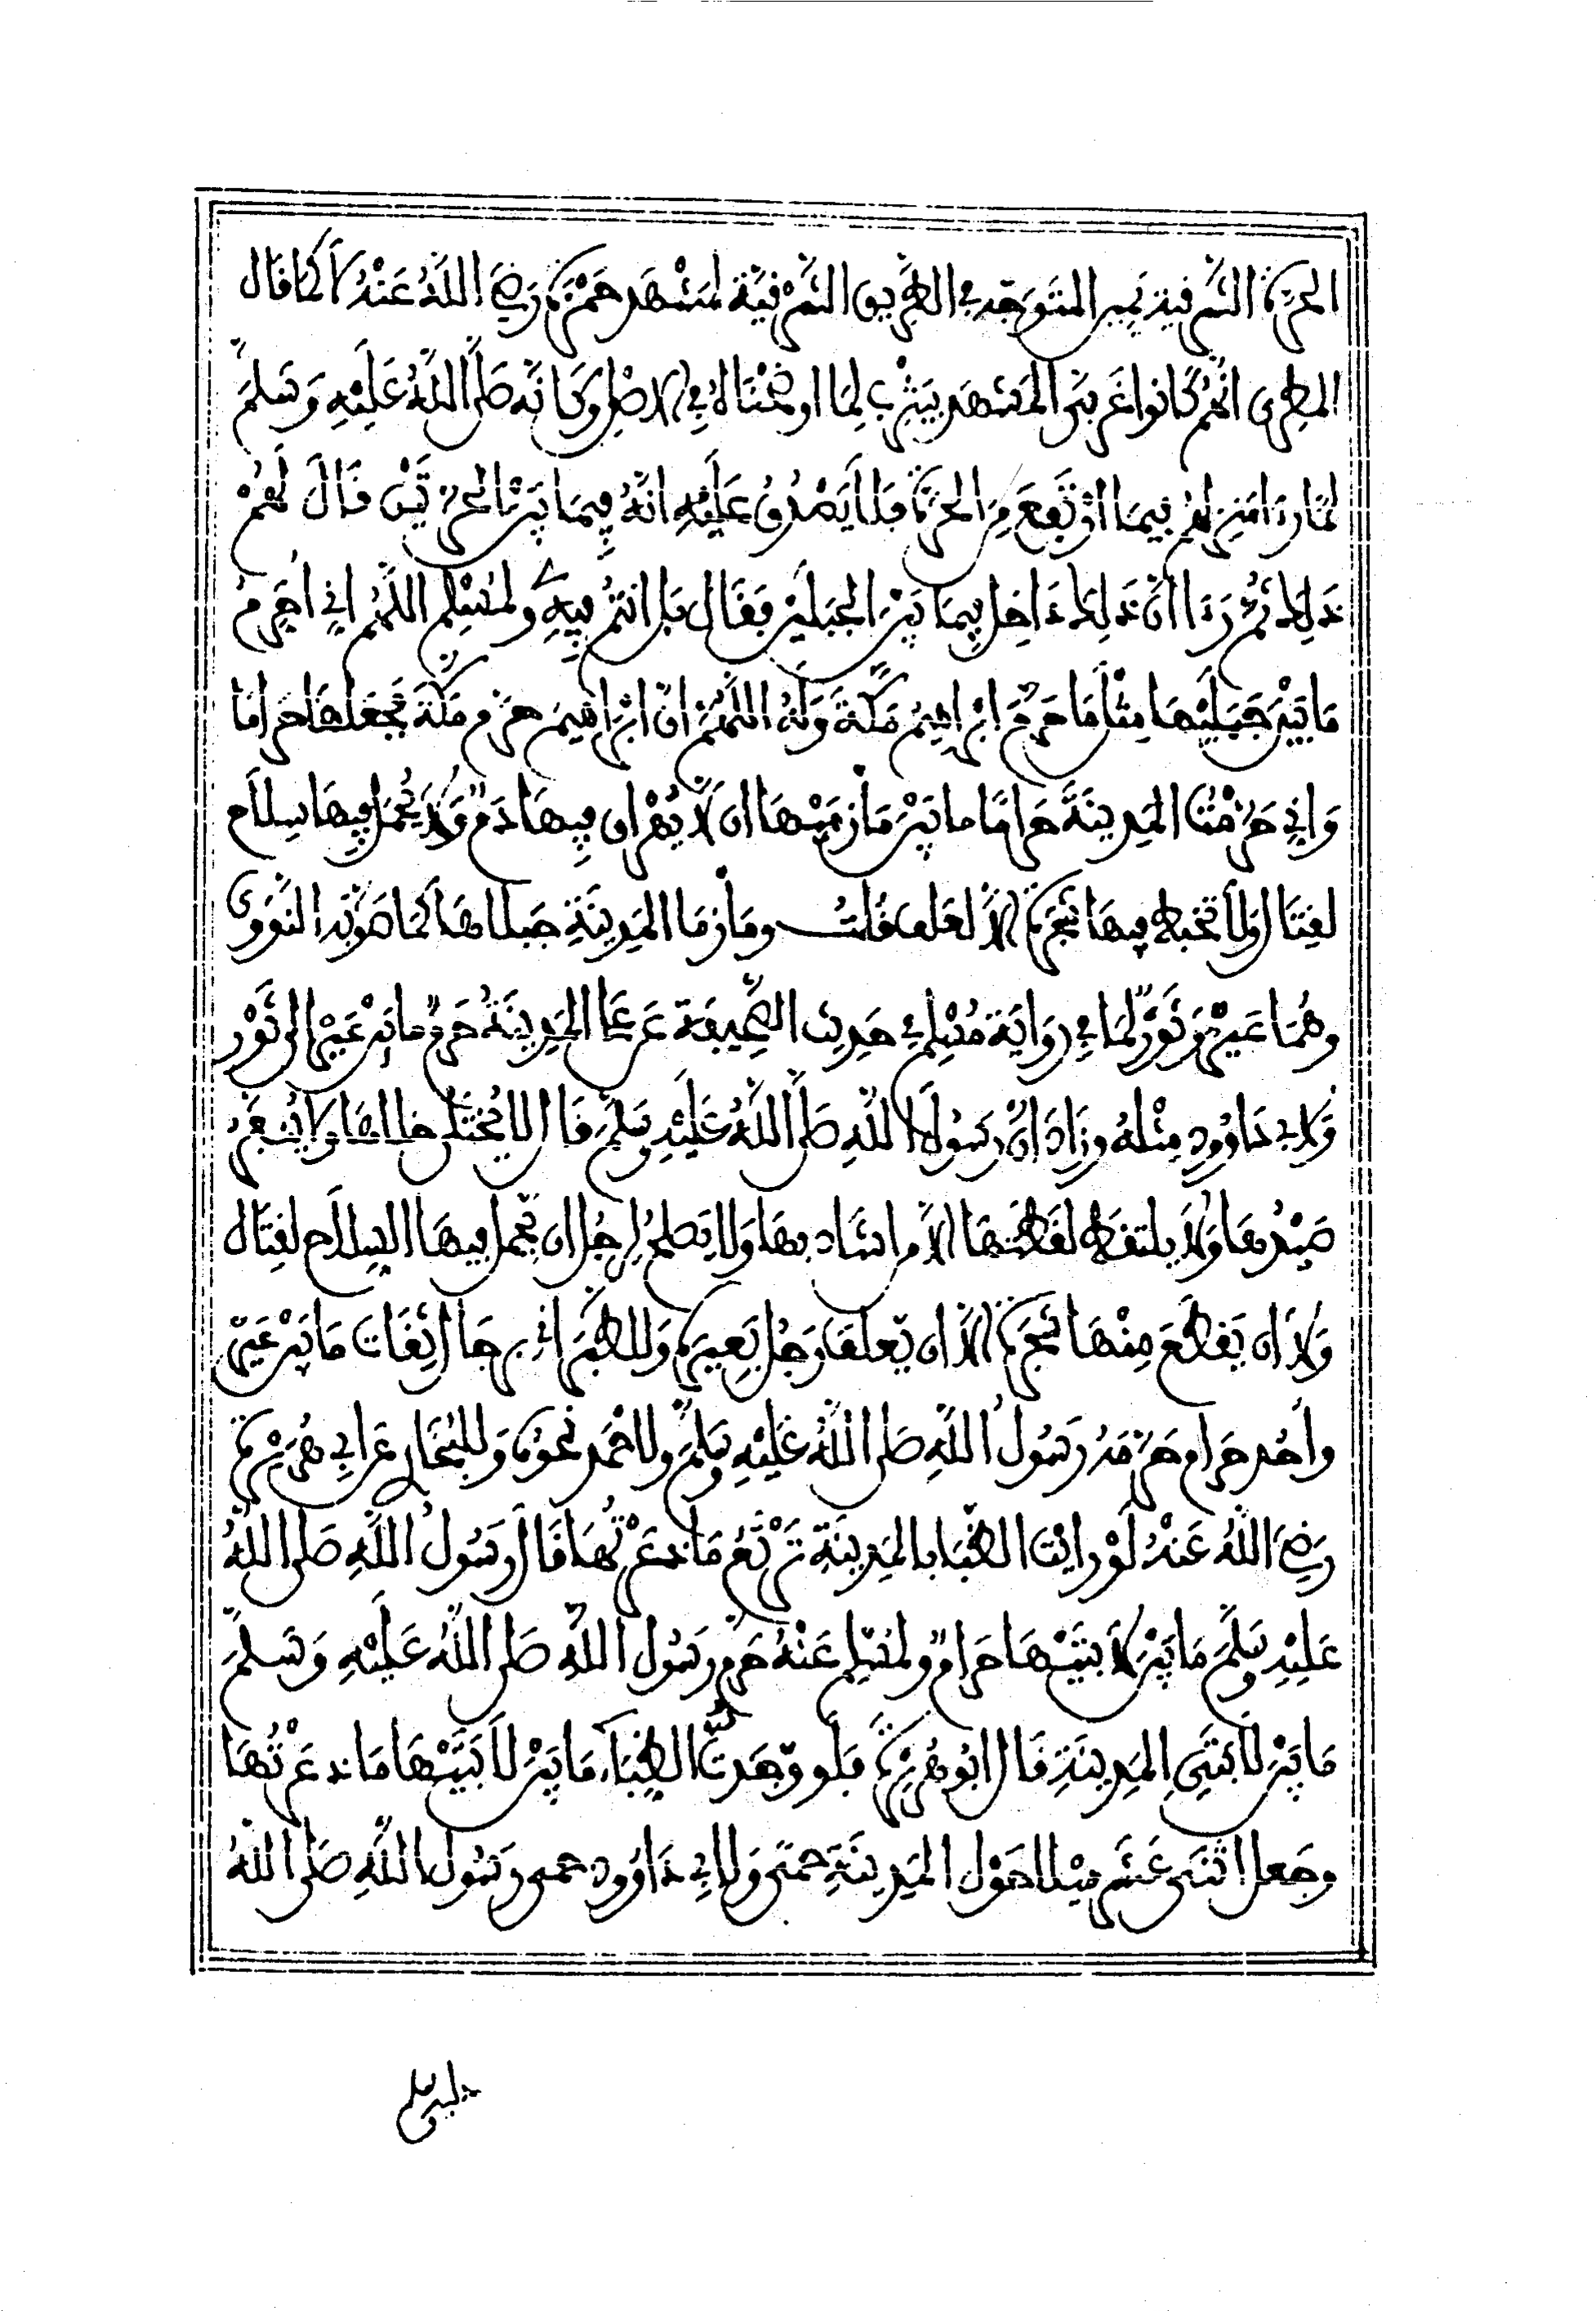 الحرة الشرفية يمين المتوجه في الطريق الشرفية لمشهد حمزة رَضِيَ اللَّهُ عَنْهُ لا كما قال
المطرى انهم كانوا غربي المشهد بيثرب لما اوضحناه في الاصل وكانه صَلَّى اللَّهُ عَلَيْهِ وَسَلَّمَ
لما رءا منزلهم فيما ارتفع من الحرة فلا يصدق عليه انه فيما بين الحرتين قال لهم
ذلك ثم رءا ان ذلك داخل فيما بين الجبلين فقال بل انتم فيه ولمسلم اللهم إني أحرم
ما بين جبليها مثل ما حرم ابراهيم مكة وله اللهم ان ابراهيم حرم مكة فجعلها حراما
وإني حرمت المدينة حراما ما بين مأزميها ان لا يهراق فيها دم ولا يحمل فيها سلاح
لقتال ولا تخبط فيها شجرة إلا لعلف قلت ومأزما المدينة جبلاها كما صوبه النووى
وهما عير وثور لما في رواية مسلم في حديث الصحيفة عن علي المدينة حرم ما بين عير الى ثور
ولابي داوود مثله وزاد ان رسول الله صلى الله عليه وسلم قال لا يختلى خلاها ولا ينفر
صيدها ولا يلتقط لقطتها إلا من اشاد بها ولا يصلح لرجل ان يحمل فيها السلاح لقتال
ولا ان يقطع منها شجرة إلا ان يعلف رجل بعيره وللطبراني برجال ثقات ما بين عير
وأحد حرام حرمه رسول الله صلى الله عليه وسلم ولاحمد نحوه وللبخاري عن ابي هريرة
رضي الله عنه لو رايت الظباء بالمدينة ترتع ما ذعرتها قال رسول الله صلى الله
عليه وسلم ما بين لابتيها حرام ولمسلم عنه حرم رسول الله صلى الله عليه وسلم
ما بين لابتي المدينة قال ابو هريرة فلو وجدت الظباء ما بين لابتيها ما ذعرتها
وجعل اثنى عشر ميلا حول المدينة حمى ولابي داوود حمى رسول الله صلى الله
عليه وسلم